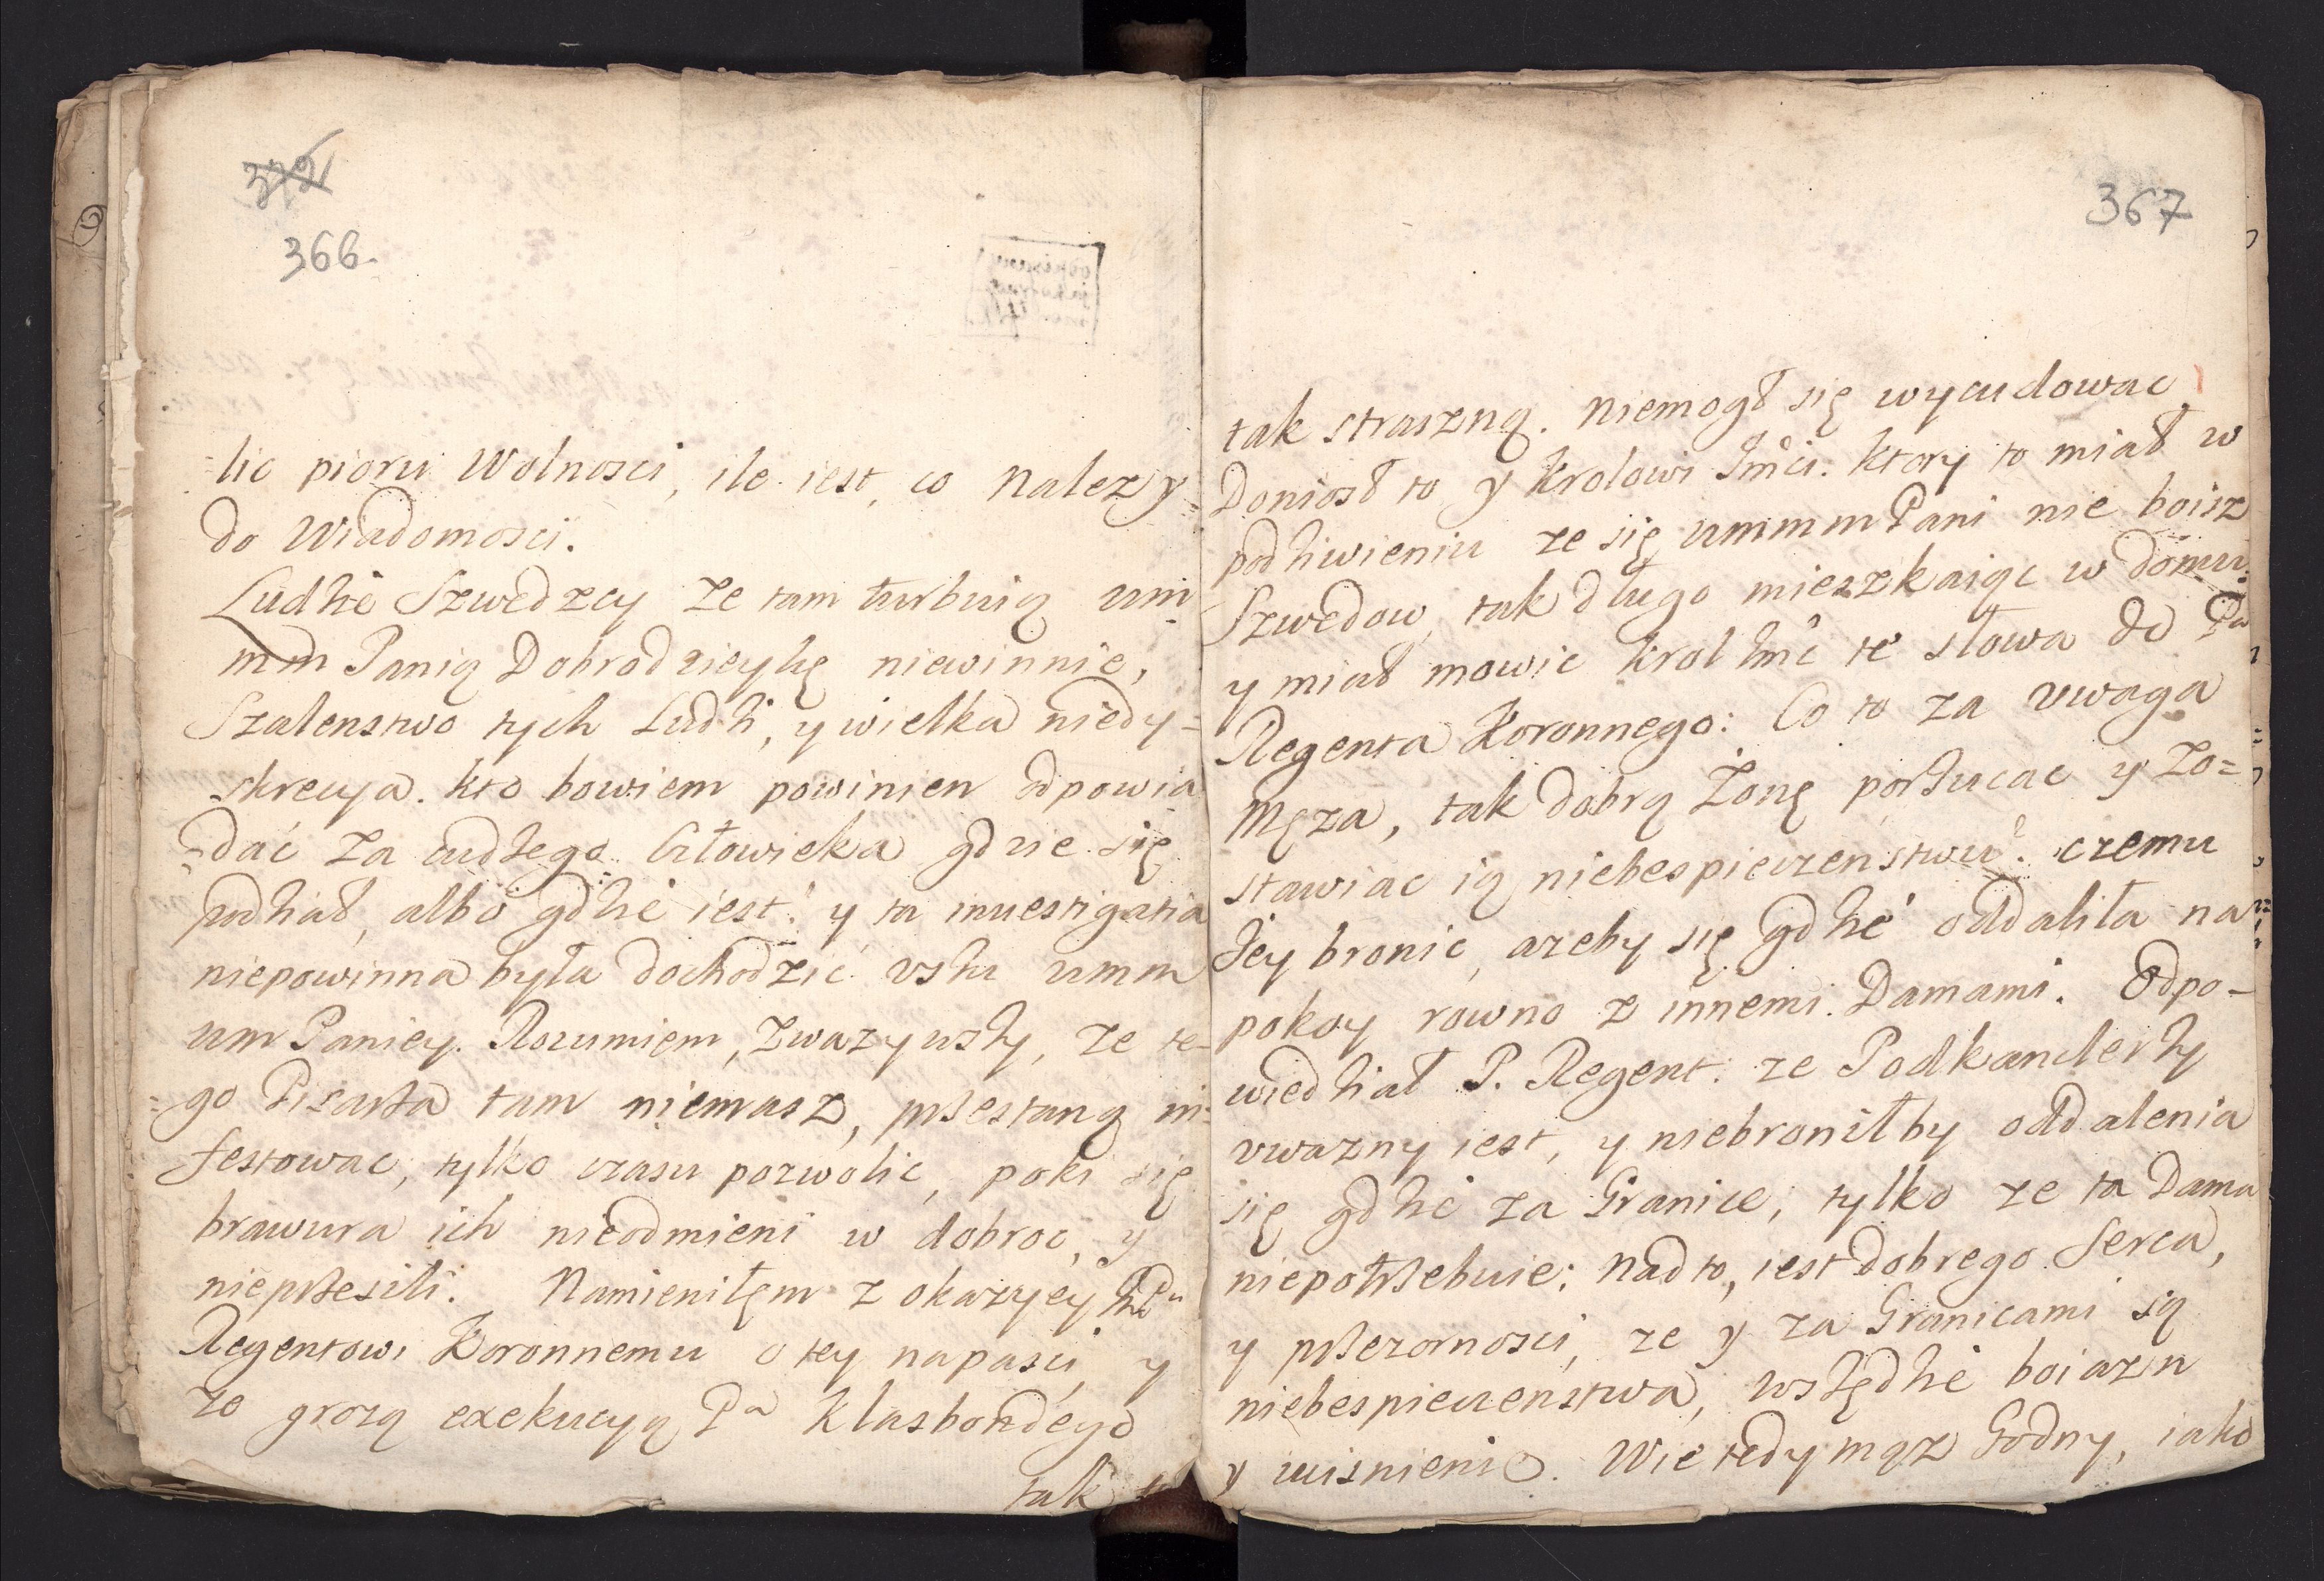 372
366.
=lic pioru Wolnosci, ile iest, co Nalezy=
do Wiadomosci.
Ludzie Szwedzcy ze tam turbuią um
mm Panią Dobrodzieykę niewinnie,
Szalenstwo tych Ludzi, y wielka niedy=
skrecya. kto bowiem powinien odpowia
=dać za cudzego Człowieka gdzie się
podział, albo gdzie iest? y ta inuestigatia
niepowinna była dochodzić uszu umm
um Paniey. Rozumiem, zwazywszy, ze te=
=go Pisarza tam niemasz, przestaną in=
festowac, tylko czasu pozwolic, poki się
brawura ich nieodmieni w dobroc, y
nieprzesili. Namieniłęm z okazyey
Regentowi Koronnemu o tey napasci, y
ze grozą exekucyą Pa Klasbondego
tak
367
tak straszną. Niemogł się wycudowac
Doniosł to y Krolowi Jmci. ktory to miał w
podziwieniu ze się ummm Pani nie boisz
Szwedow, tak długo mieszkaiąc w domu.
y miał mowic krol Jmć te słowa do Pa
Regenta Koronnego: Co to za uwaga
Męza, tak dobrą Żonę porzucac y Zo=
stawiac ią niebespieczenstwu? czemu
Jey bronic, azeby się gdzie oddaliła na
pokoy rowno z innemi Damami. Odpo-
wiedział P. Regent: ze Podkanclerzy
uwazny iest, y niebroniłby oddalenia
się gdzie za Granice, tylko ze ta Dama
niepotrzebuie; nadto, iest dobrego Serca,
y przezornosci, ze y za Granicami są
niebespieczenstwa, wszędzie boiazn
y ucisnienie. Wie tedy mąz Godny, iako